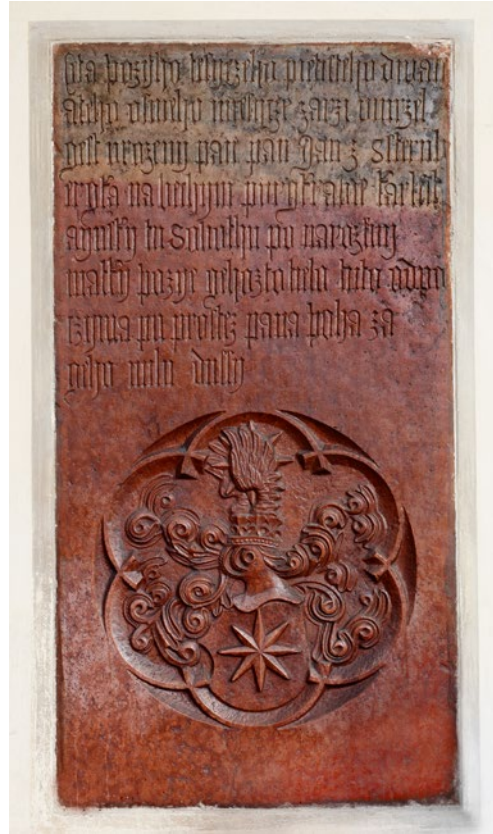 leta bozyho tisyczeho pietisteho dwacz
ateho osmeho miesycze zarzi vmrzel
gest vrozeny pan pan Jan z Sternb
ergka na bechyni purgkrabie karlsst
aynsky tu Sobothu po narozeny
matky bozye gehozto tielo tuto odpo
czywa pu prostez pana boha za
geho milu dussy